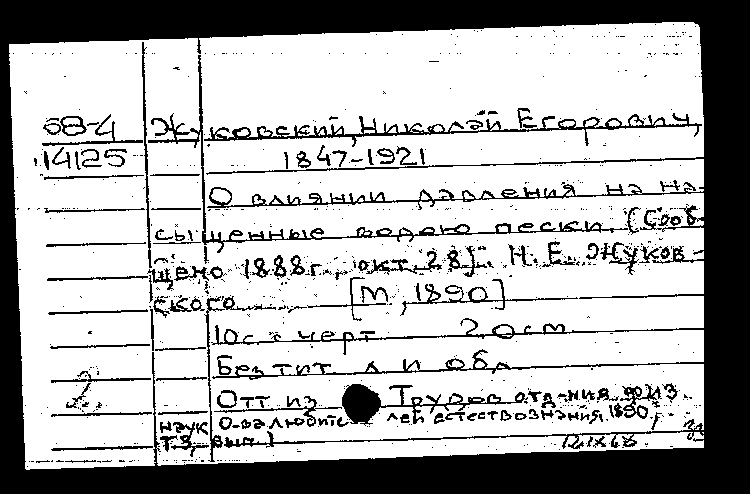 68-4 Жуковский, Николай Егорович,
14125 1847-1921
О влиянии давления на на-
сыщенные водою пески. (Сооб-
щено 1888г., окт. 28). Н. Е. Жуков-
ского [М, 1890]
10с. с черт 20см
Без тит л и обл
2. Отт из Трудов отд-ния физ.
наук О-ва любителей естествознания. 1890,
Т.3, вып. 1
12.IX 68